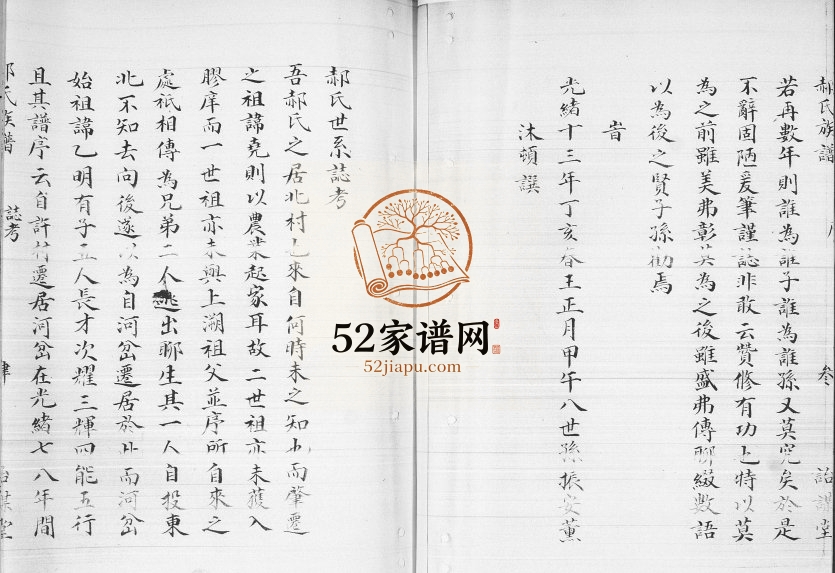 郝氏族譜 八 叁 詒謀堂
若再數年則誰為誰子誰為誰孫又莫究矣於是
不辭固陋爰筆謹誌非敢云贊修有功也特以莫
為之前雖美弗彰莫為之後雖盛弗傳聊綴數語
以為後之賢子孫勸焉
旹
光緒十三年丁亥春王正月甲午八世孫振安薰
沐頓譔
郝氏世系誌考
吾郝氏之居北村也來自何時未之知也而肇遷
之祖諱堯則以農業起家耳故二世祖亦未獲入
膠庠而一世祖亦未與上溯祖父並序所自來之
處祇相傳為兄弟二人逃出聊生其一人自投東
北不知去向後遂以為自河岔遷居於此而河岔
始祖諱乙明有子五人長才次耀三輝四能五行
且其譜序云自許村遷居河岔在光緒七八年間
郝氏族譜 誌考 肆 詒謀堂
52家谱网
52jiapu.com